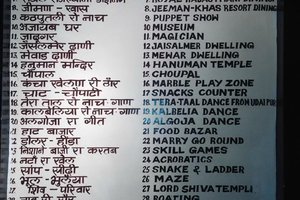 8 जीमण - खास 8 JEEMAN-KHAS RESORT DINING
9 कठपुतली रो नाच 9 PUPPET SHOW
10 अजायब घर 10 MUSEUM
11 जादूगर 11 MAGICIAN
12 जैसलमेर ढाणी 12 JAISALMER DWELLING
13 मेवाड़ ढाणी 13 MEHAR DWELLING
14 हनुमान मन्दिर 14 HANUMAN TEMPLE
15 चौपाल 15 CHOUPAL
16 कंचा खेलण री ठौर 16 MARBLE PLAY ZONE
17 चाट - चौपाटी 17 SNACKS COUNTER
18 तेरा ताल रो नाच-गाण 18 TERA-TAAL DANCE FROM UDAIPUR
19 कालबेलिया रो नाच गाण 19 KALBELIA DANCE
20 अलगोजा रा गीत 20 ALGOJA DANCE
21 हाट बाजार 21 FOOD BAZAR
22 डोलर - हींडा 22 MARRY GO ROUND
23 निशानेबाजी रा करतब 23 SKILL GAMES
24 नटों रा खेल 24 ACROBATICS
25 सांप - सीढ़ी 25 SNAKE & LADDER
26 भूल - भूलैया 26 MAZE
27 शिव - परिवार 27 LORD SHIVA TEMPLE
28 28 BOATING